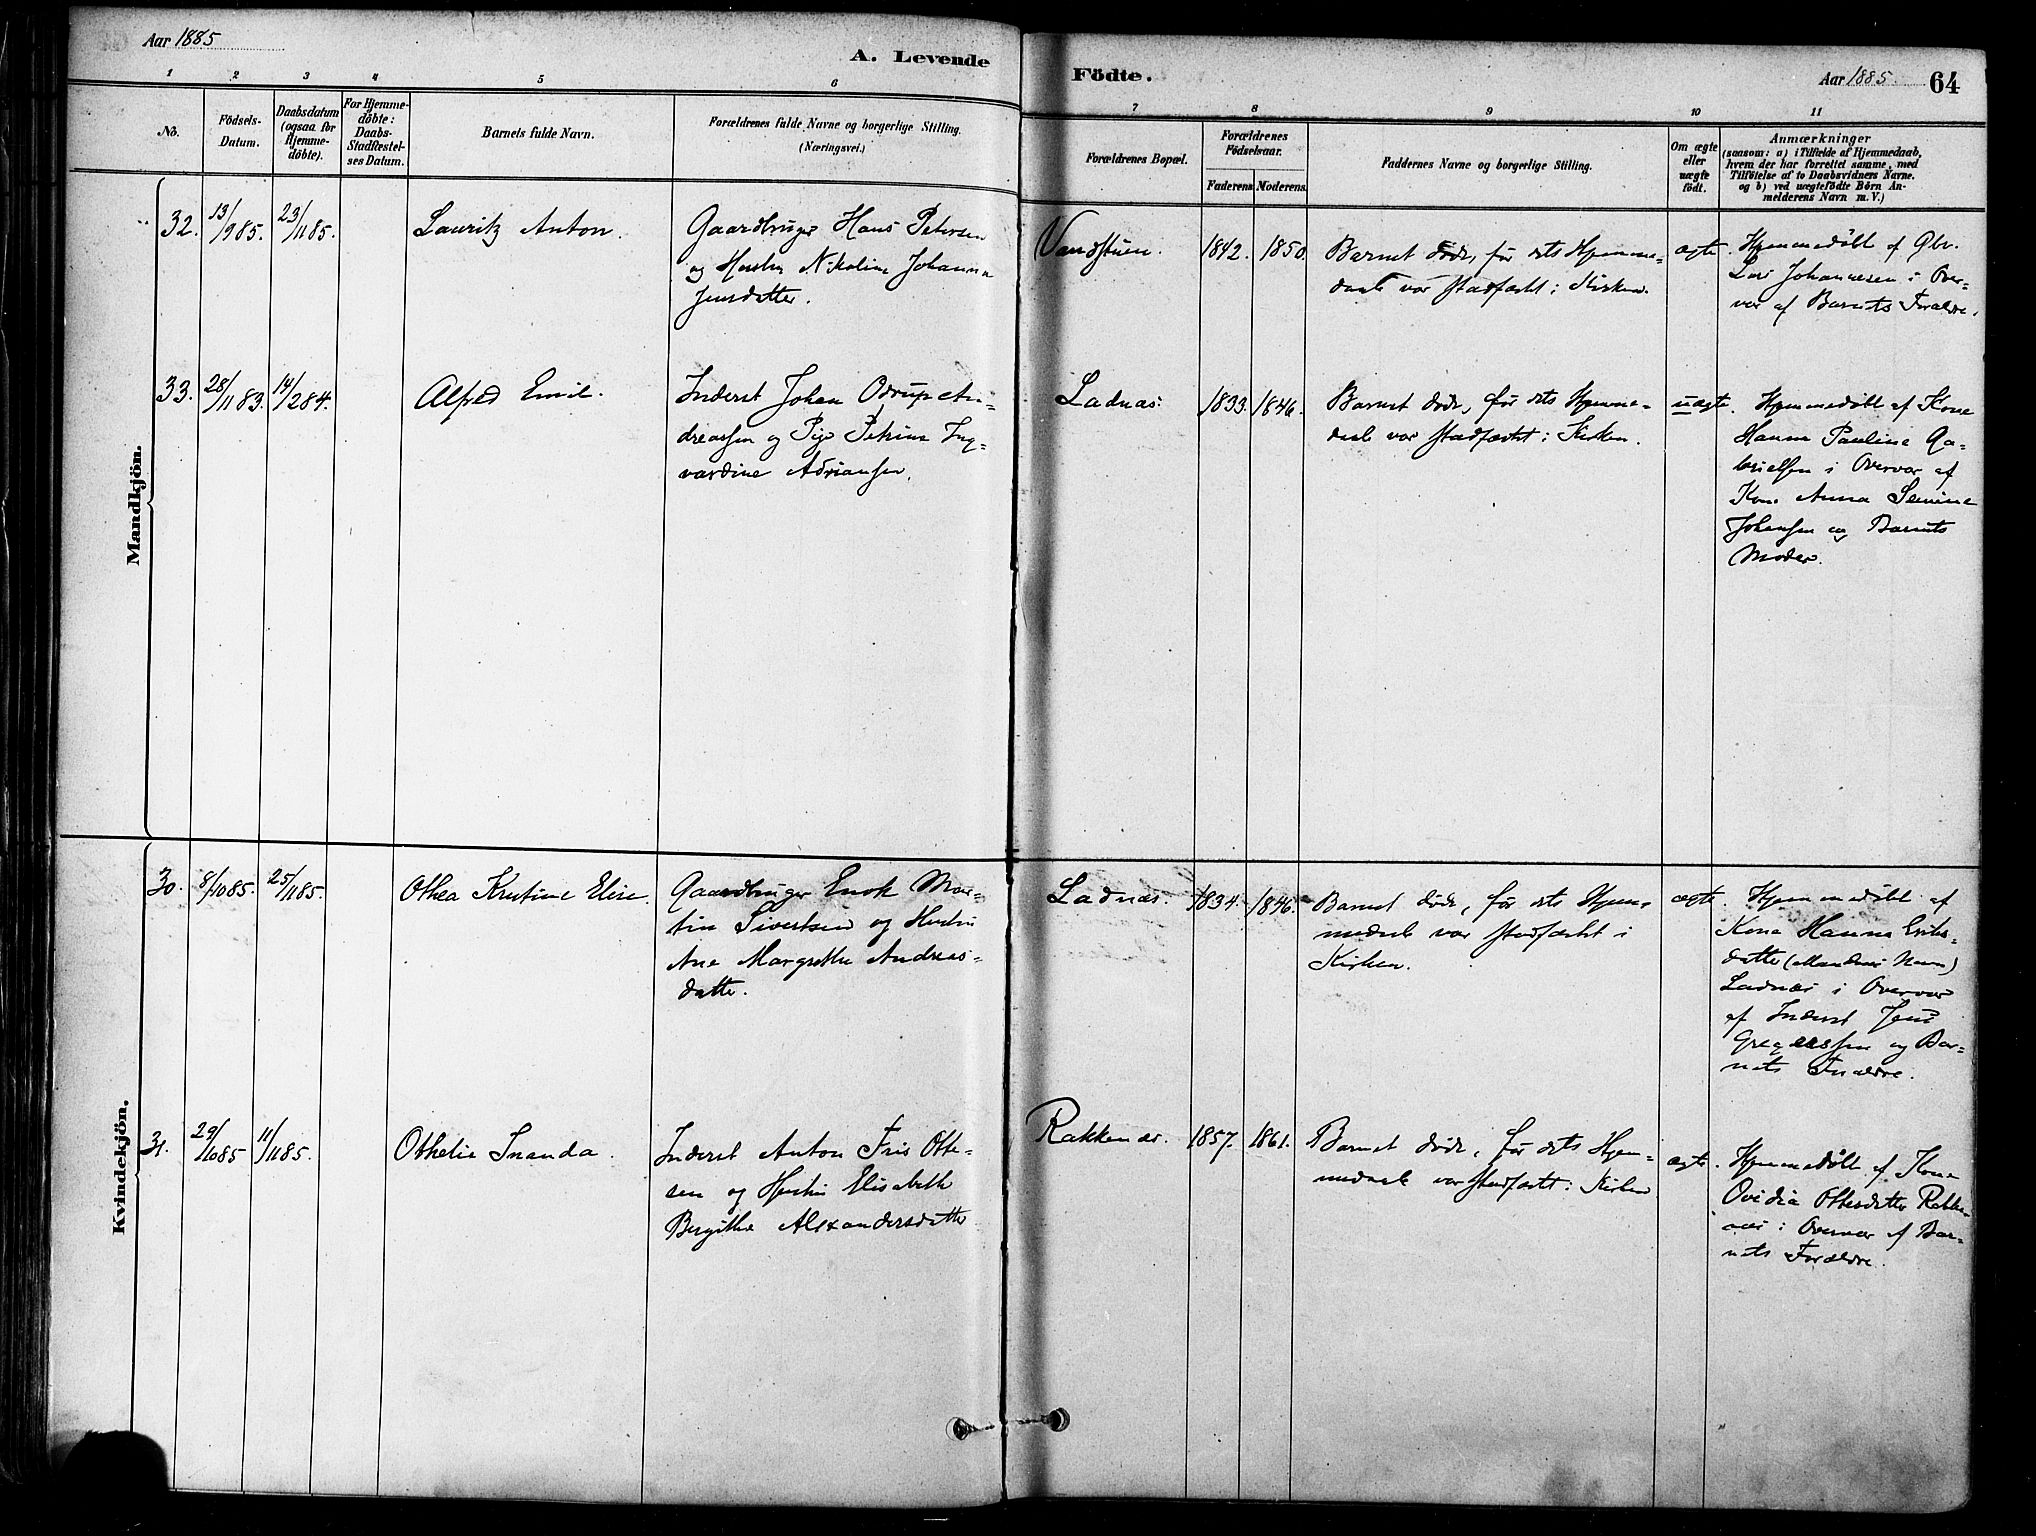 Aar 1885
A. Levende
Födte.
Aar 1885.
64
1 2 3 4 5 6 7 8 9 10 11
No.
Födsels-
Datum.
Daabsdatum
(ogsaa for
Hjemme-
döbte).
For Hjemme-
döbte:
Daabs-
Stadfæstel-
ses Datum.
Barnets fulde Navn.
Forældrenes fulde Navne og borgerlige Stilling.
(Næringsvei.)
Forældrenes Bopæl.
Forældrenes
Födselsaar.
Faderens
Moderens.
Faddernes Navne og borgerlige Stilling.
Om ægte
eller
uægte
födt.
Anmærkninger
(saasom: a) i Tilfælde af Hjemmedaab,
hvem der har forrettet samme, med
Tilföielse af to Daabsvidners Navne.
og b) ved uægtefödte Börn An-
melderens Navn m. V.)
Mandkjön.
32.
13/985.
23/1185.
Lauritz Anton.
Gaardbruger Hans Petersen
og Hustru Nikoline Johanna
Jensdatter.
1842.
1850.
Barnet døde, før dets Hjemme=
daab var stadfæstet i Kirken.
ægte.
Hjemmedøbt af Gbr.
Johannesen i Over=
vær af Barnets Forældre.
33.
28/1183.
14/284.
Alfred Emil.
Inderst Johan Odrup An=
dreassen og Pige Petrine Ing=
vardine Adriansen.
Ladnæs.
1833.
1846.
Barnet døde, før dets Hjemme=
daab var stadfæstet i Kirken.
uægte.
Hjemmedøbt af Kone
Hanna Pauline Ga=
brielsen i Overvær af
Kone Anna
Johansen og Barnets
Moder.
Kvindekjön.
30.
8/1085.
25/1185.
Othea Kristine Elise.
Gaardbruger Enok Mar=
tin Sivertsen og Hustru
Ane Margrethe Andreas=
datter.
Ladnæs.
1834.
1846.
Barnet døde, før dets Hjem=
medaab var stadfæstet i
Kirken.
ægte.
Hjemmedøbt af
Kone Hanna Eriks=
datter (Mandens Navn)
Ladnæs i Overvær
af Inderst Jens
Gregersen og Bar=
nets Forældre.
31.
29/1085
11/1185.
Othelie Inanda.
Inderst Anton Friis Otte=
sen og Hustru Elisabeth
Bergithe Alexandersdatter
Rakkenæs.
1857.
1861.
Barnet døde, før dets Hjem=
medaab var stadfæstet i Kirken
ægte.
Hjemmedøbt af Kone
Ovidia Ottesdatter Rakke=
næs i Overvær af Bar=
nets Forældre.